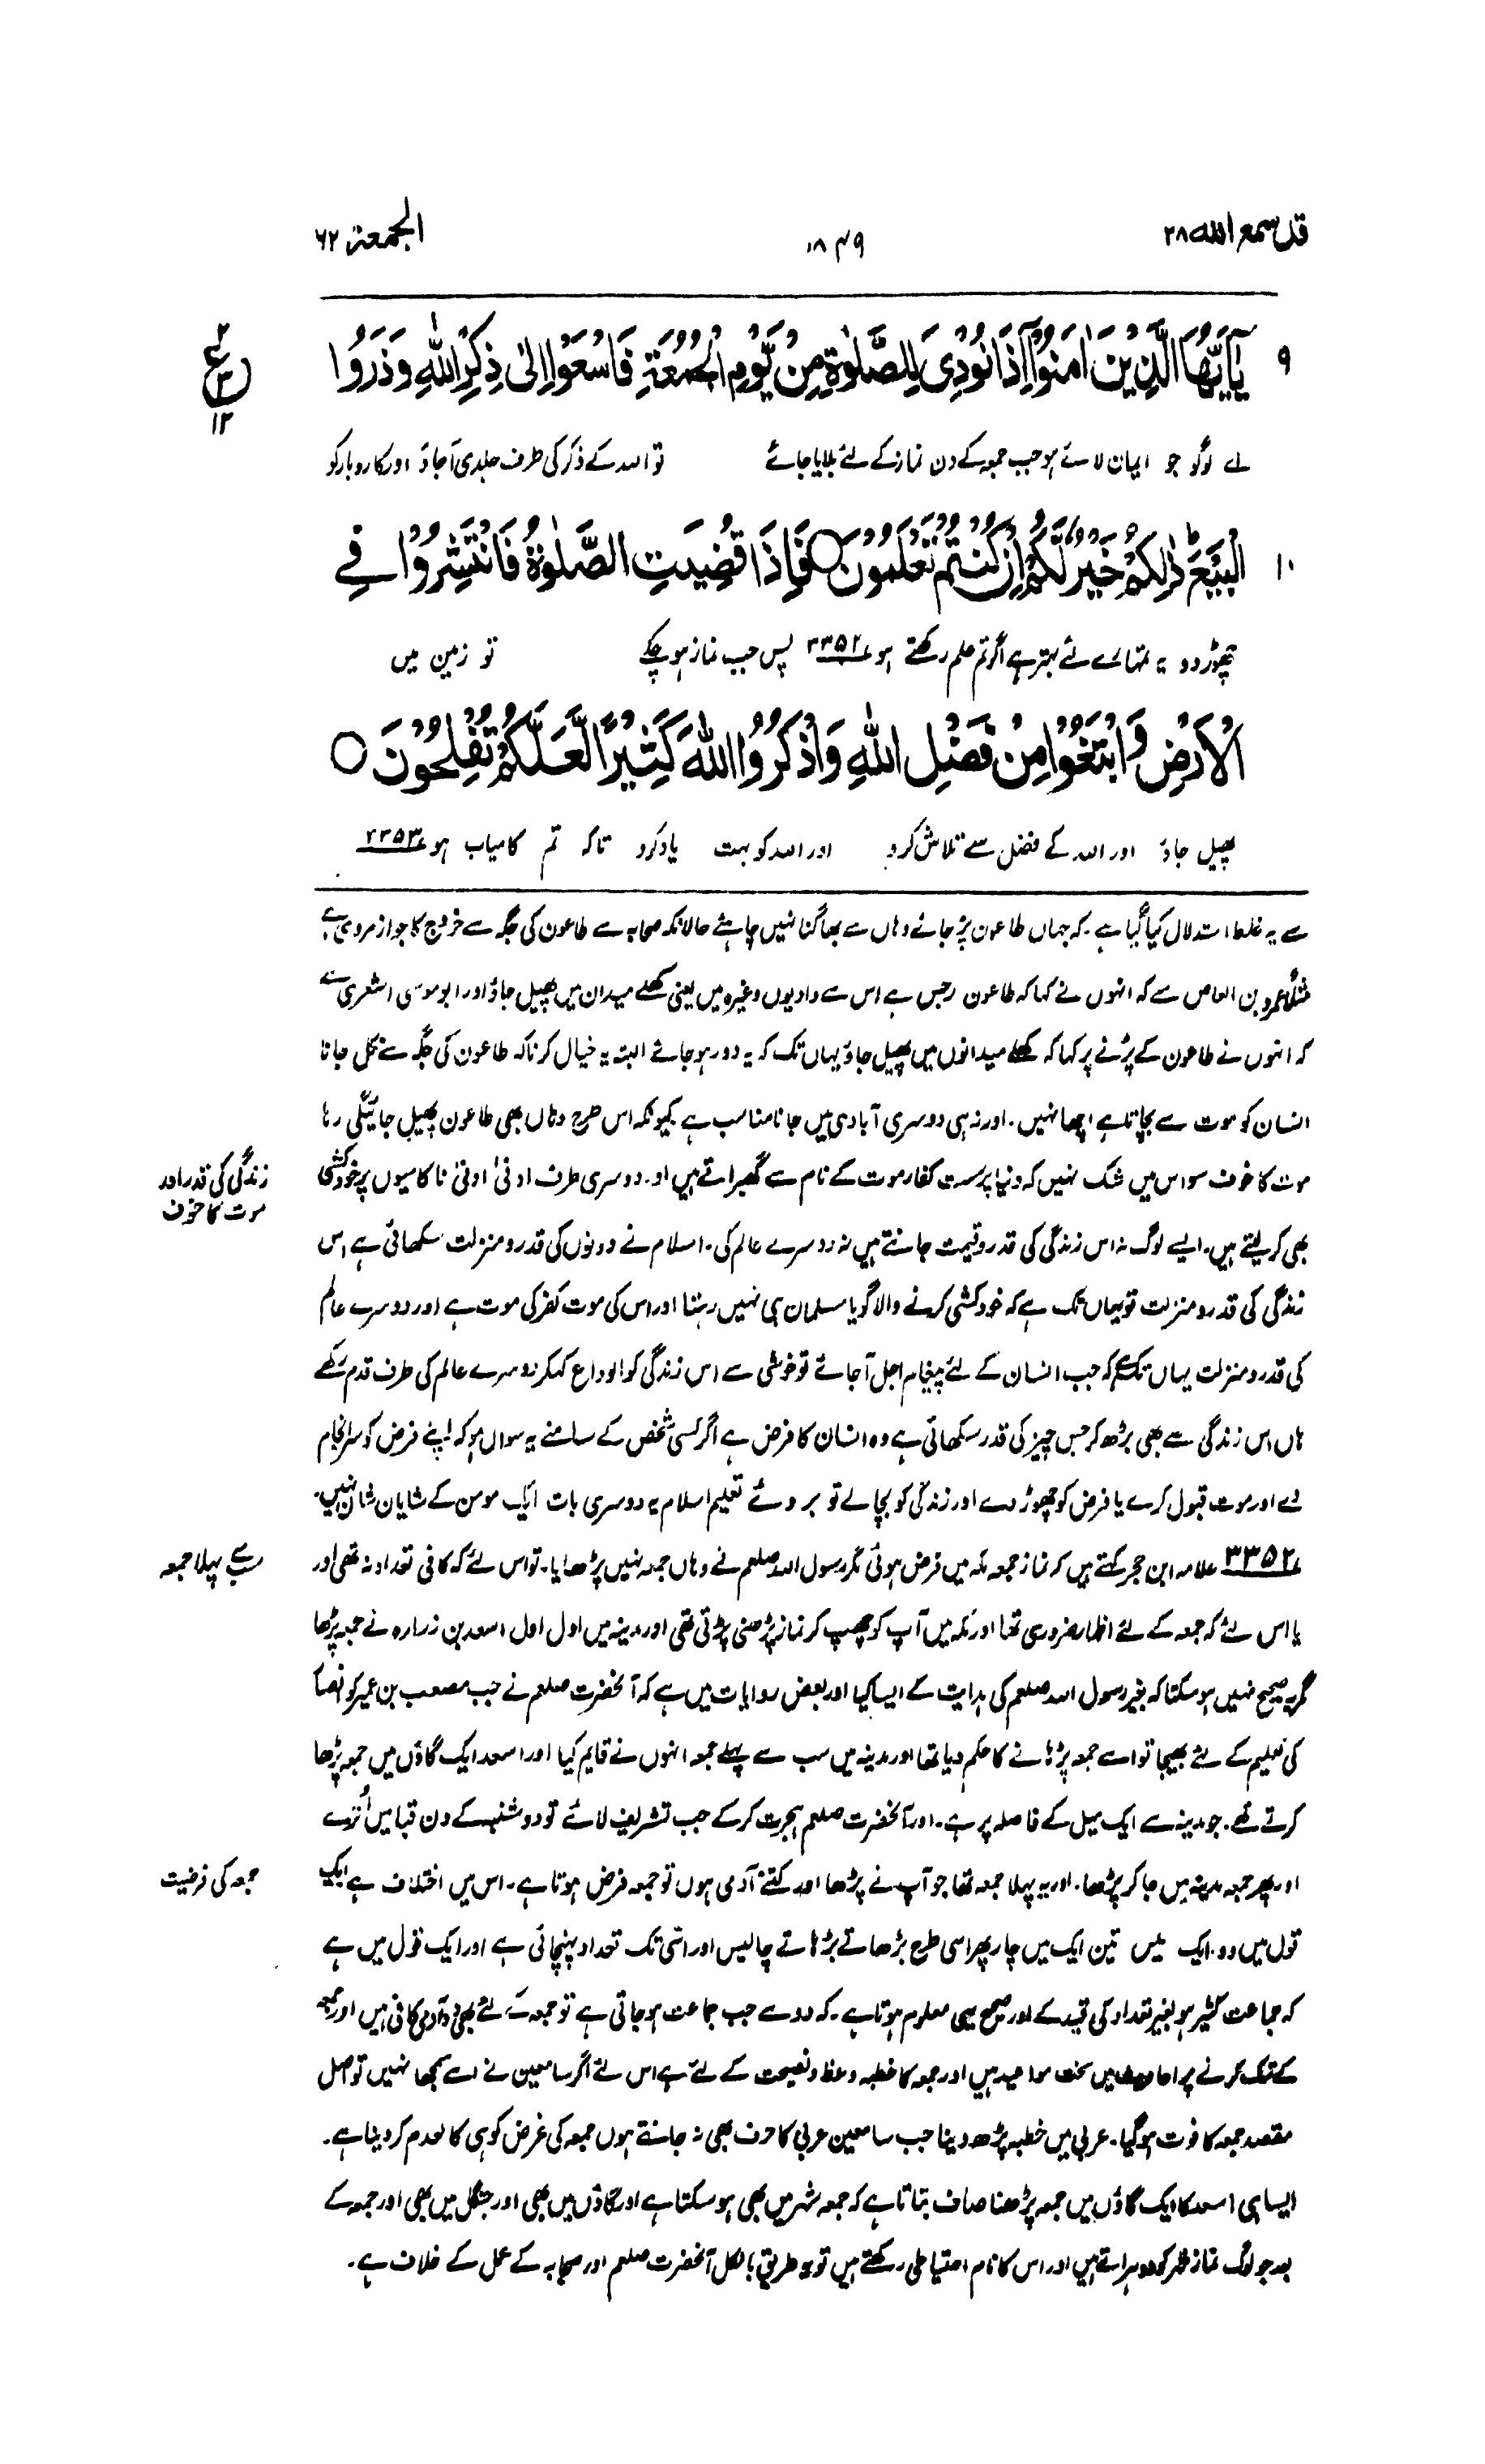 قد سمع الله ٢٨
١٨٤٩
الجمعة ٦٢
٩
يٰۤاَيُّهَا الَّذِيْنَ اٰمَنُوْۤا اِذَا نُوْدِيَ لِلصَّلٰوةِ مِنْ يَّوْمِ الْجُمُعَةِ فَاسْعَوْا اِلٰى ذِكْرِ اللّٰهِ وَذَرُوا
٢
ع
١٢
اے لوگو جو ایمان لائے ہو جب جمعہ کے دن نماز کے لئے بلایا جائے تو اللہ کے ذکر کی طرف جلدی آجاؤ اور کاروبار کو
١٠
الْبَيْعَ ؕ ذٰلِكُمْ خَيْرٌ لَّكُمْ اِنْ كُنْتُمْ تَعْلَمُوْنَ ○ فَاِذَا قُضِيَتِ الصَّلٰوةُ فَانْتَشِرُوْا فِي
چھوڑ دو یہ تمہارے لئے بہتر ہے اگر تم علم رکھتے ہو ۳۳۵۲ پس جب نماز ہو چکے تو زمین میں
الْاَرْضِ وَابْتَغُوْا مِنْ فَضْلِ اللّٰهِ وَاذْكُرُوا اللّٰهَ كَثِيْرًا لَّعَلَّكُمْ تُفْلِحُوْنَ ○
پھیل جاؤ اور اللہ کے فضل سے تلاش کرو اور اللہ کو بہت یاد کرو تاکہ تم کامیاب ہو ۳۳۵۳
سے یہ غلط استدلال کیا گیا ہے۔ کہ جہاں طاعون پڑ جائے وہاں سے بھاگنا نہیں چاہئے حالانکہ صحابہ سے طاعون کی جگہ سے خروج کا جواز مروی ہے
مثلاً عمرو بن العاص سے کہ انہوں نے کہا کہ طاعون رجس ہے اس سے وادیوں وغیرہ میں یعنی کھلے میدان میں پھیل جاؤ اور ابو موسی اشعری سے
کہ انہوں نے طاعون کے پڑنے پر کہا کہ کھلے میدانوں میں پھیل جاؤ یہاں تک کہ یہ دور ہو جائے البتہ یہ خیال کرنا کہ طاعون کی جگہ سے نکل جانا
انسان کو موت سے بچاتا ہے اچھا نہیں۔ اور نہ ہی دوسری آبادی میں جانا مناسب ہے کیونکہ اس طرح وہاں بھی طاعون پھیل جائیگی رہا
موت کا خوف سو اس میں شک نہیں کہ دنیا پرست کفار موت کے نام سے گھبراتے ہیں او۔ دوسری طرف ادنیٰ ادنیٰ ناکامیوں پر خودکشی
زندگی کی قدر اور
موت کا خوف
بھی کر لیتے ہیں۔ ایسے لوگ نہ اس زندگی کی قدر و قیمت جانتے ہیں نہ دوسرے عالم کی۔ اسلام نے دونوں کی قدر و منزلت سکھائی ہے اس
زندگی کی قدر و منزلت تو یہاں تک ہے کہ خودکشی کرنے والا گویا مسلمان ہی نہیں رہتا اور اس کی موت کفر کی موت ہے اور دوسرے عالم
کی قدر و منزلت یہاں تک ہے کہ جب انسان کے لئے پیغام اجل آجائے تو خوشی سے اس زندگی کو الوداع کہکر دوسرے عالم کی طرف قدم رکھے
ہاں اس زندگی سے بھی بڑھ کر جس چیز کی قدر سکھائی ہے وہ انسان کا فرض ہے اگر کسی شخص کے سامنے یہ سوال ہو کہ اپنے فرض کو سرانجام
دے اور موت قبول کرے یا فرض کو چھوڑ دے اور زندگی کو بچالے تو بروئے تعلیم اسلام یہ دوسری بات ایک مومن کے شایان شان نہیں۔
۳۳۵۲ علامہ ابن حجر کہتے ہیں کہ نماز جمعہ مکہ میں فرض ہوئی مگر رسول اللہ صلعم نے وہاں جمعہ نہیں پڑھایا۔ تو اس لئے کہ کافی تعداد نہ تھی اور
سب سے پہلا جمعہ
یا اس لئے کہ جمعہ کے لئے اظہار ضروری تھا اور مکہ میں آپ کو چھپ کر نماز پڑھنی پڑتی تھی اور مدینہ میں اول اول اسعد بن زرارہ نے جمعہ پڑھا
مگر یہ صحیح نہیں ہو سکتا کہ بغیر رسول اللہ صلعم کی ہدایت کے ایسا کیا اور بعض روایات میں ہے کہ آنحضرت صلعم نے جب مصعب بن عمیر کو انصار
کی تعلیم کے لئے بھیجا تو اسے جمعہ پڑہانے کا حکم دیا تھا اور مدینہ میں سب سے پہلے جمعہ انہوں نے قایم کیا اور اسعد ایک گاؤں میں جمعہ پڑھا
کرتے تھے۔ جو مدینہ سے ایک میل کے فاصلہ پر ہے۔ اور آنحضرت صلعم ہجرت کر کے جب تشریف لائے تو دو شنبہ کے دن قبا میں اُترے
اور پھر جمعہ مدینہ میں جا کر پڑھا۔ اور یہ پہلا جمعہ تھا جو آپ نے پڑھا اور کتنے آدمی ہوں تو جمعہ فرض ہوتا ہے۔ اس میں اختلاف ہے ایک
جمعہ کی فرضیت
قول میں دو۔ ایک میں تین ایک میں چار پھر اسی طرح بڑھاتے بڑھاتے چالیس اور اسّی تک تعداد پہنچائی ہے اور ایک قول میں ہے
کہ جماعت کثیر ہو بغیر تعداد کی قید کے اور صحیح یہی معلوم ہوتا ہے۔ کہ دو سے جب جماعت ہو جاتی ہے تو جمعہ کے لئے بھی دو آدمی کافی ہیں اور جمعہ
کے ترک کرنے پر احادیث میں سخت مواعید ہیں اور جمعہ کا خطبہ وعظ و نصیحت کے لئے ہے اس لئے اگر سامعین نے اسے سمجھا نہیں تو اصل
مقصد جمعہ کا فوت ہو گیا۔ عربی میں خطبہ پڑھ دینا جب سامعین عربی کا حرف بھی نہ جانتے ہوں جمعہ کی غرض کو ہی کالعدم کر دینا ہے۔
ایسا ہی اسعد کا ایک گاؤں میں جمعہ پڑھنا صاف بتاتا ہے کہ جمعہ شہر میں بھی ہو سکتا ہے اور گاؤں میں بھی اور جنگل میں بھی اور جمعہ کے
بعد جو لوگ نماز ظہر کو دوہراتے ہیں اور اس کا نام احتیاطی رکھتے ہیں تو یہ طریق بالکل آنحضرت صلعم اور صحابہ کے عمل کے خلاف ہے۔